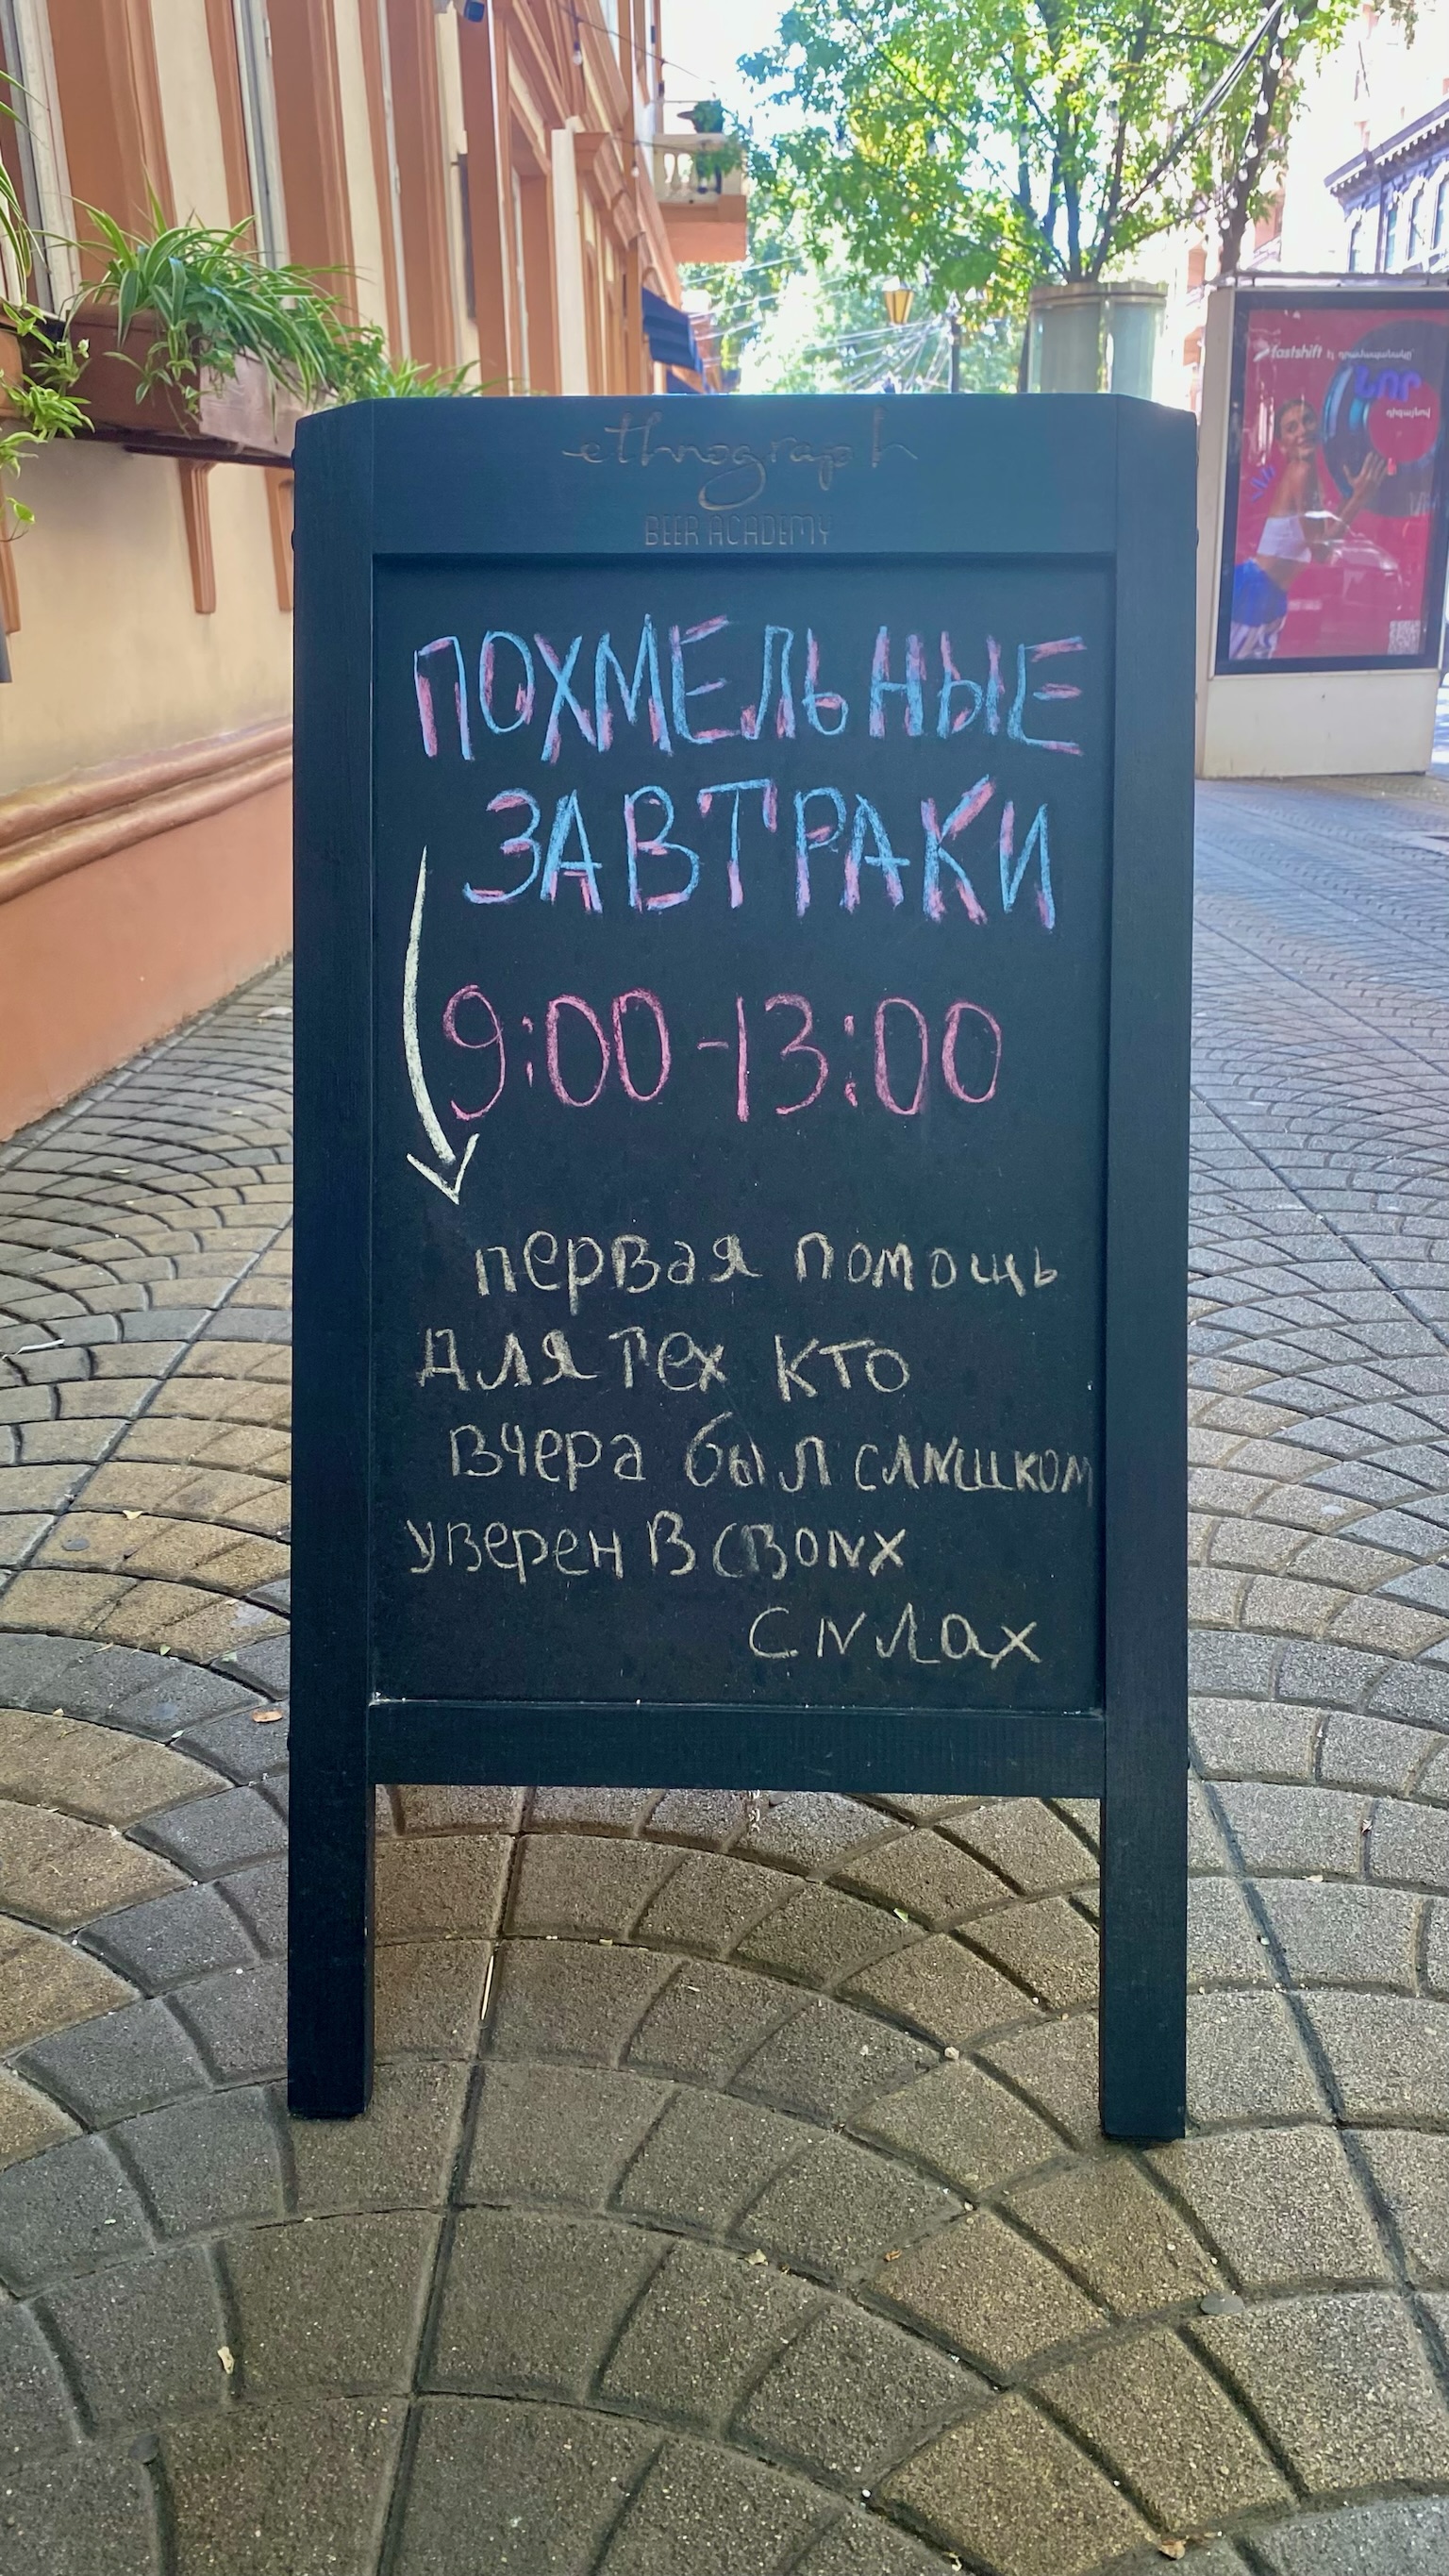 ethnograph
BEER ACADEMY
ПОХМЕЛЬНЫЕ
ЗАВТРАКИ
9:00-13:00
первая помощь
для тех кто
вчера был слишком
уверен в своих
силах
fastshift
ՆՈՐ